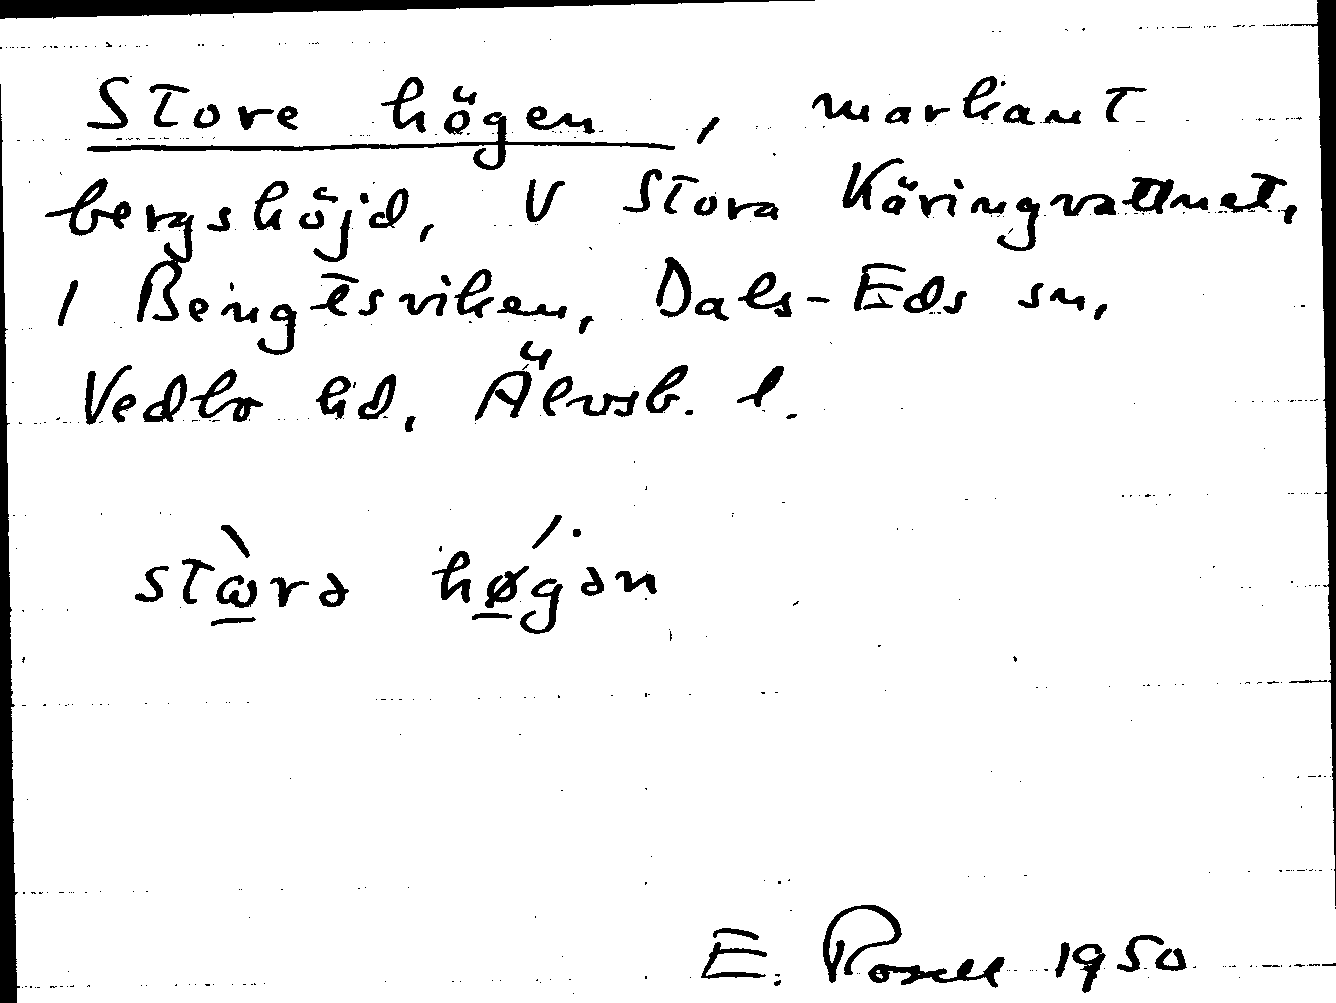 Store högen, markant
bergshöjd, V Stora Käringvattnet,
i Bengtsviken, Dals-Eds sn,
Vedbo hd, Älvsb. l.
stꞷ̀rə hǿgən
E. Rosell 1950